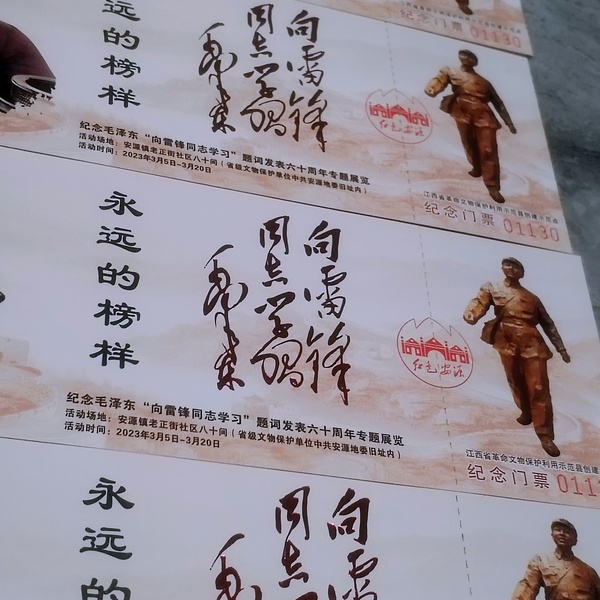 纪念门票 01130
远的榜样
向雷锋
同志学习
毛泽东
红色安源
纪念毛泽东“向雷锋同志学习”题词发表六十周年专题展览
活动场地：安源镇老正街社区八十间（省级文物保护单位中共安源地委旧址内）
活动时间：2023年3月5日-3月20日
江西省革命文物保护利用示范县创建示范点
纪念门票 01130
永远的榜样
向雷锋
同志学习
毛泽东
红色安源
纪念毛泽东“向雷锋同志学习”题词发表六十周年专题展览
活动场地：安源镇老正街社区八十间（省级文物保护单位中共安源地委旧址内）
活动时间：2023年3月5日-3月20日
江西省革命文物保护利用示范县创建
纪念门票 011
永远的
向雷
同志